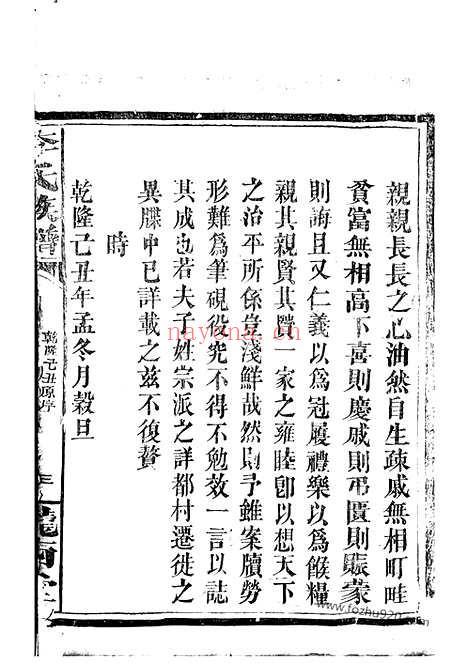 親親長長之心油然自生疎戚無相町畦
貧富無相高下喜則慶戚則弔匱則賑蒙
則誨且又仁義以為冠履禮樂以為餱糧
親其親賢其賢一家之雍睦卽以想天下
之治平所係豈淺鮮哉然則予雖案牘勞
形難為筆硯役究不得不勉效一言以誌
其成也若夫子姓宗派之詳都村遷徙之
異牒中已詳載之兹不復贅
時
乾隆己丑年孟冬月穀旦
李氏族譜
乾隆己丑原序
三
隴西堂
nayona.cn
www.fozhu920.com